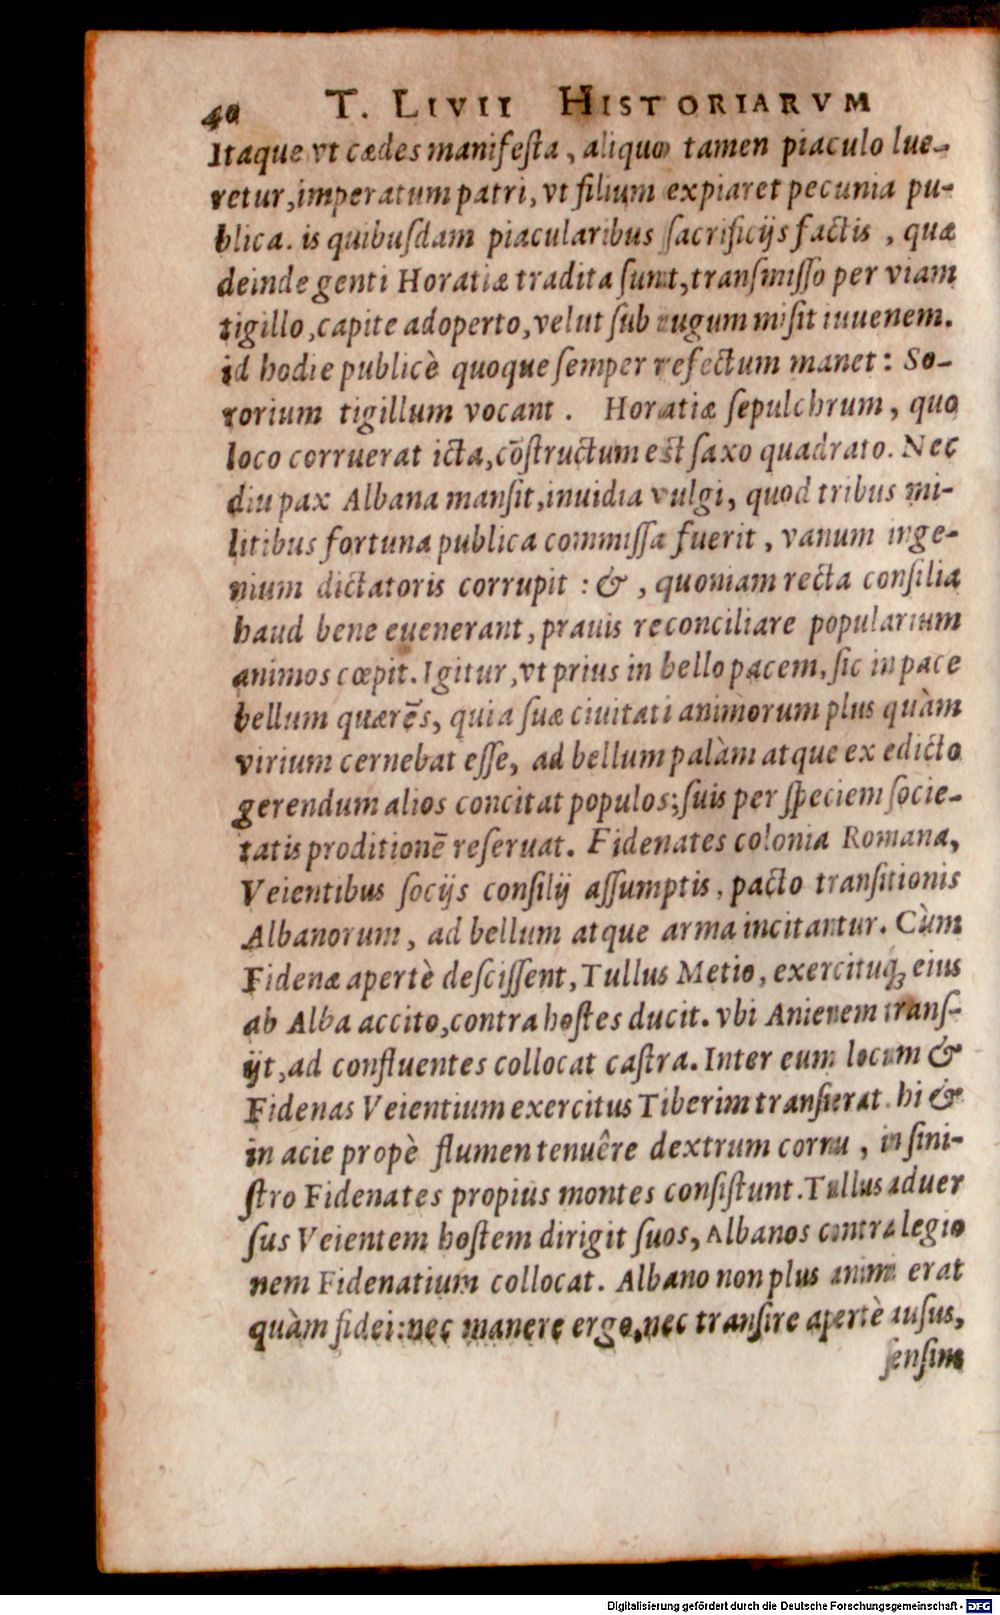 40 T. LIVII HISTORIARVM
Itaque vt cædes manifeſta, aliquo tamen piaculo lue-
retur, imperatum patri, vt filium expiaret pecunia pu-
blica. is quibuſdam piacularibus ſacrificijs factis, quæ
deinde genti Horatiæ tradita ſunt, tranſmiſſo per viam
tigillo, capite adoperto, velut ſub iugum miſit iuuenem.
id hodie publicè quoque ſemper refectum manet: So-
rorium tigillum vocant. Horatiæ ſepulchrum, quo
loco corruerat icta, cõſtructum est ſaxo quadrato. Nec
diu pax Albana manſit, inuidia vulgi, quod tribus mi-
litibus fortuna publica commiſſa fuerit, vanum inge-
nium dictatoris corrupit: &, quoniam recta conſilia
haud bene euenerant, prauis reconciliare popularium
animos cœpit. Igitur, vt prius in bello pacem, ſic in pace
bellum quærẽs, quia ſuæ ciuitati animorum plus quàm
virium cernebat eſſe, ad bellum palàm atque ex edicto
gerendum alios concitat populos; ſuis per ſpeciem ſocie-
tatis proditionẽ reſeruat. Fidenates colonia Romana,
Veientibus ſocijs conſilij aſſumptis, pacto tranſitionis
Albanorum, ad bellum atque arma incitantur. Cùm
Fidenæ apertè deſciſſent, Tullus Metio, exercituq́; eius
ab Alba accito, contra hoſtes ducit. vbi Anienem tranſ-
ijt, ad confluentes collocat caſtra. Inter eum locum &
Fidenas Veientium exercitus Tiberim tranſierat. hi &
in acie propè flumen tenuêre dextrum cornu, in ſini-
ſtro Fidenates propius montes conſiſtunt. Tullus aduer
ſus Veientem hoſtem dirigit ſuos, Albanos contra legio
nem Fidenatium collocat. Albano non plus animi erat
quàm fidei: nec manere ergo, nec tranſire apertè auſus,
ſenſim
Digitalisierung gefördert durch die Deutsche Forschungsgemeinschaft - DFG